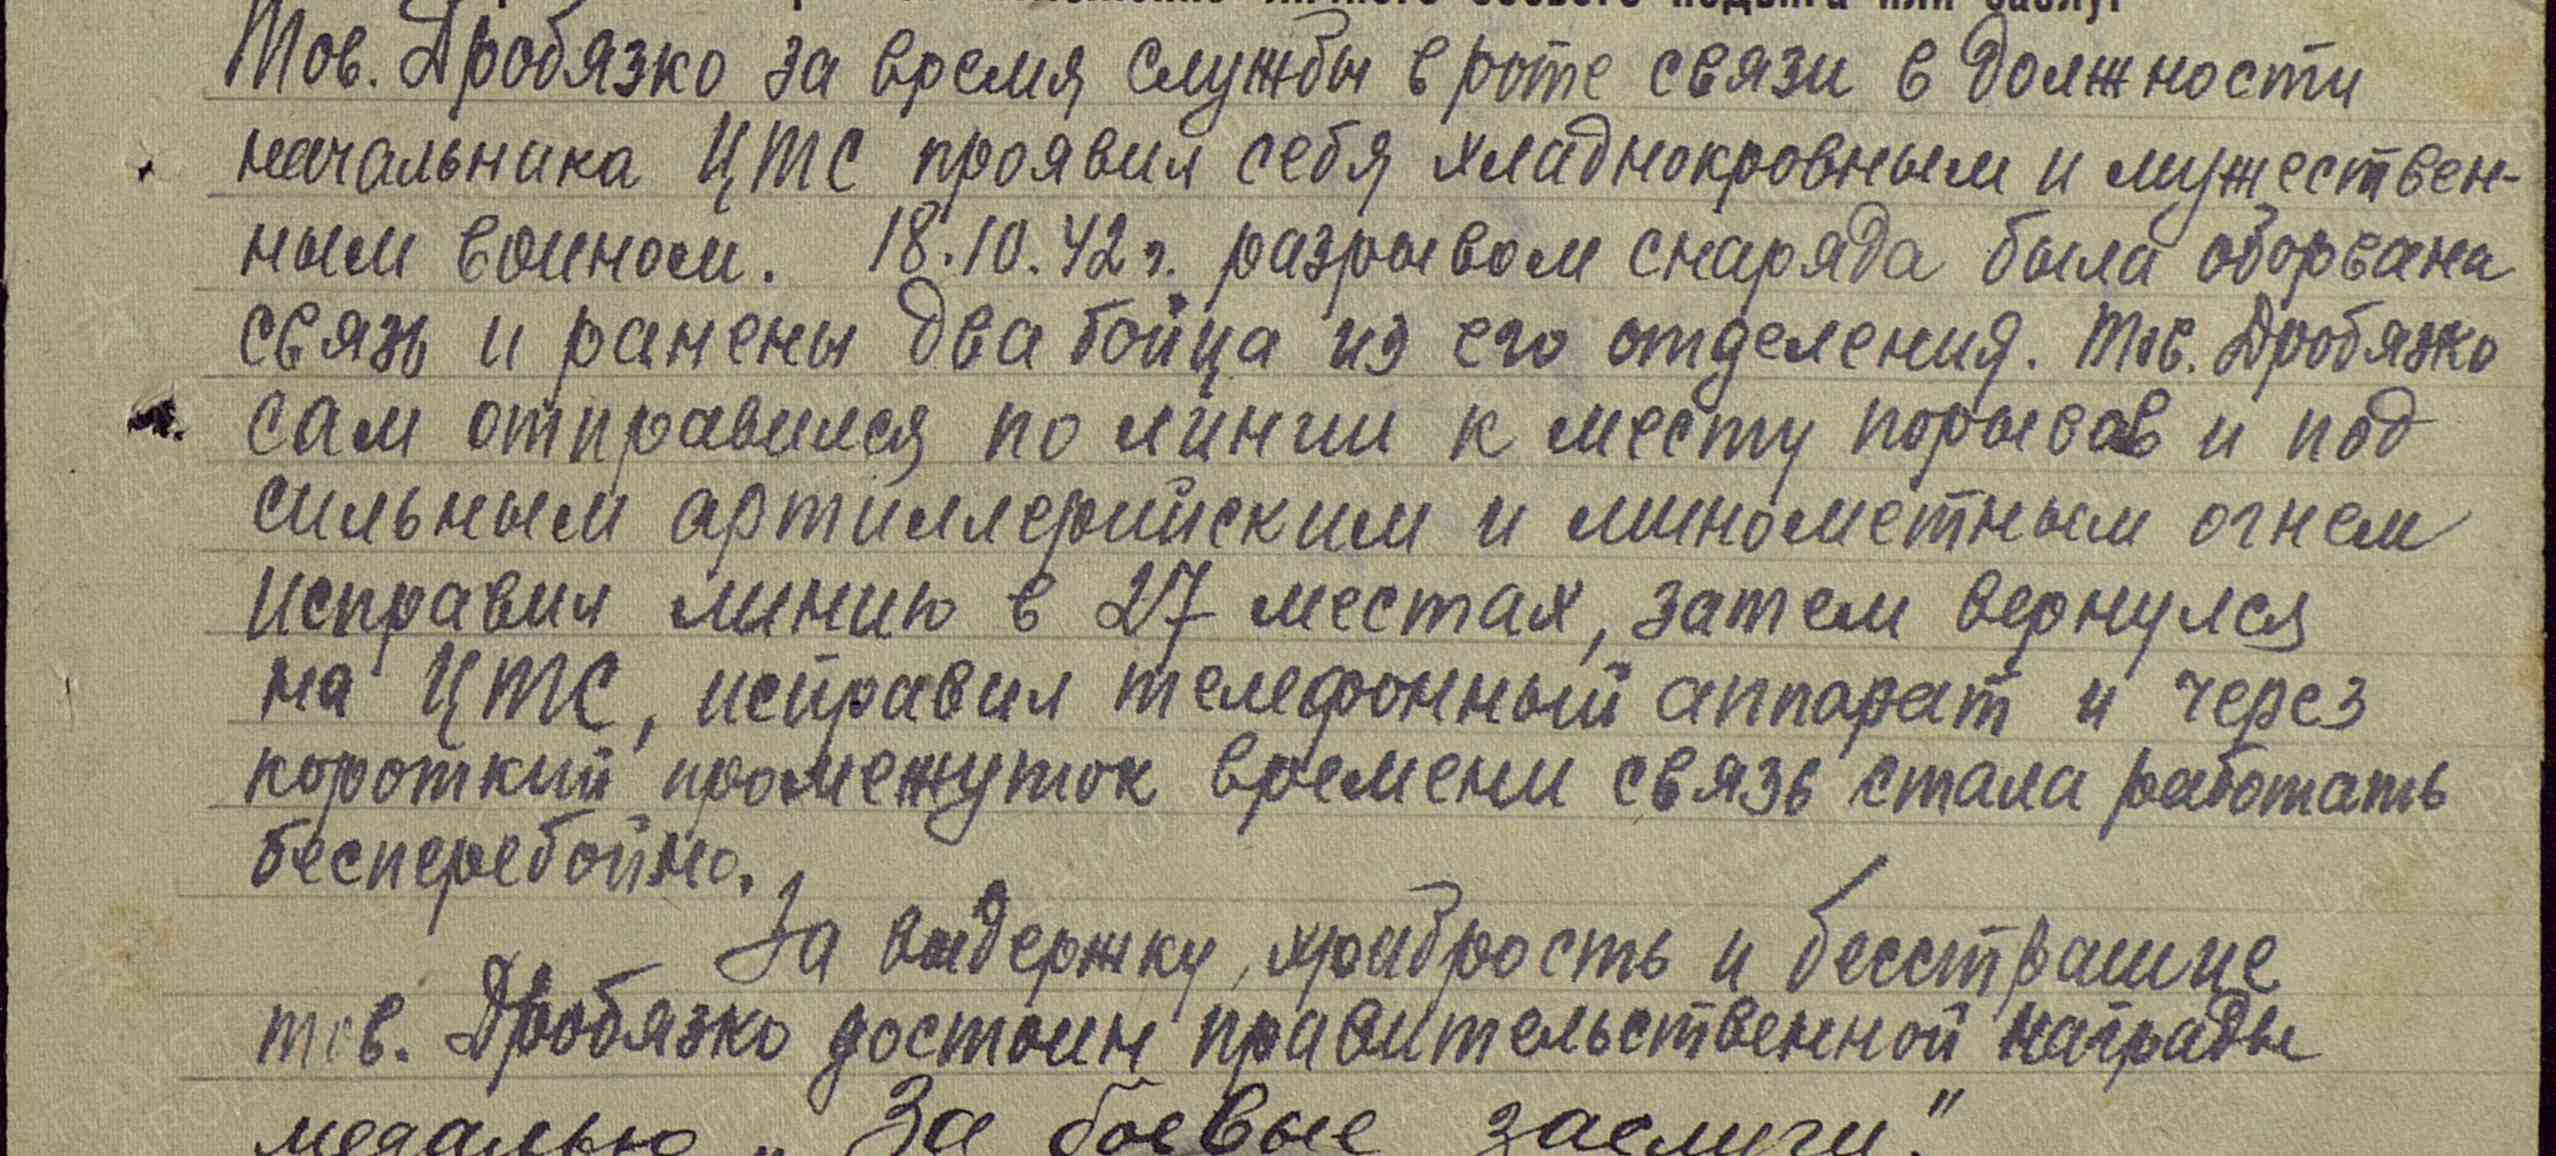 Тов. Дробязко за время службы в роте связи в должности
начальника ЦТС проявил себя хладнокровным и мужествен-
ным воином. 18.10.42 г. разрывом снаряда была оборвана
связь и ранены два бойца из его отделения. Тов. Дробязко
сам отправился по линии к месту порывов и под
сильным артиллерийским и минометным огнем
исправил линию в 27 местах, затем вернулся
на ЦТС, исправил телефонный аппарат и через
короткий промежуток времени связь стала работать
бесперебойно.
За выдержку, храбрость и бесстрашие
тов. Дробязко достоин правительственной награды
медалью „За боевые заслуги."